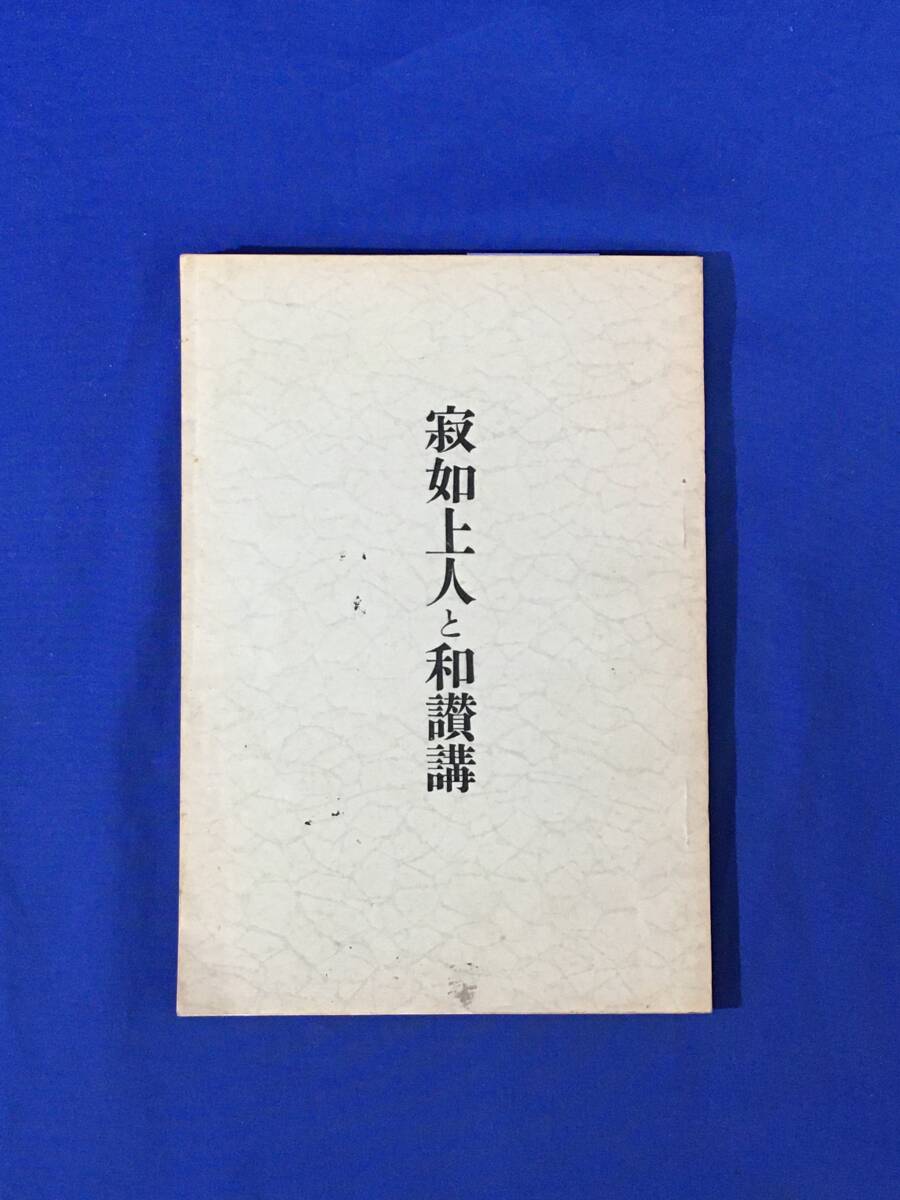 寂如上人と和讃講